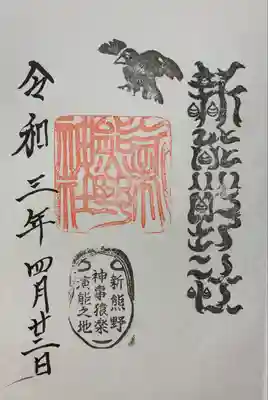 新熊野神社
新熊野
神事猿楽
演能之地
令和三年四月廿二日